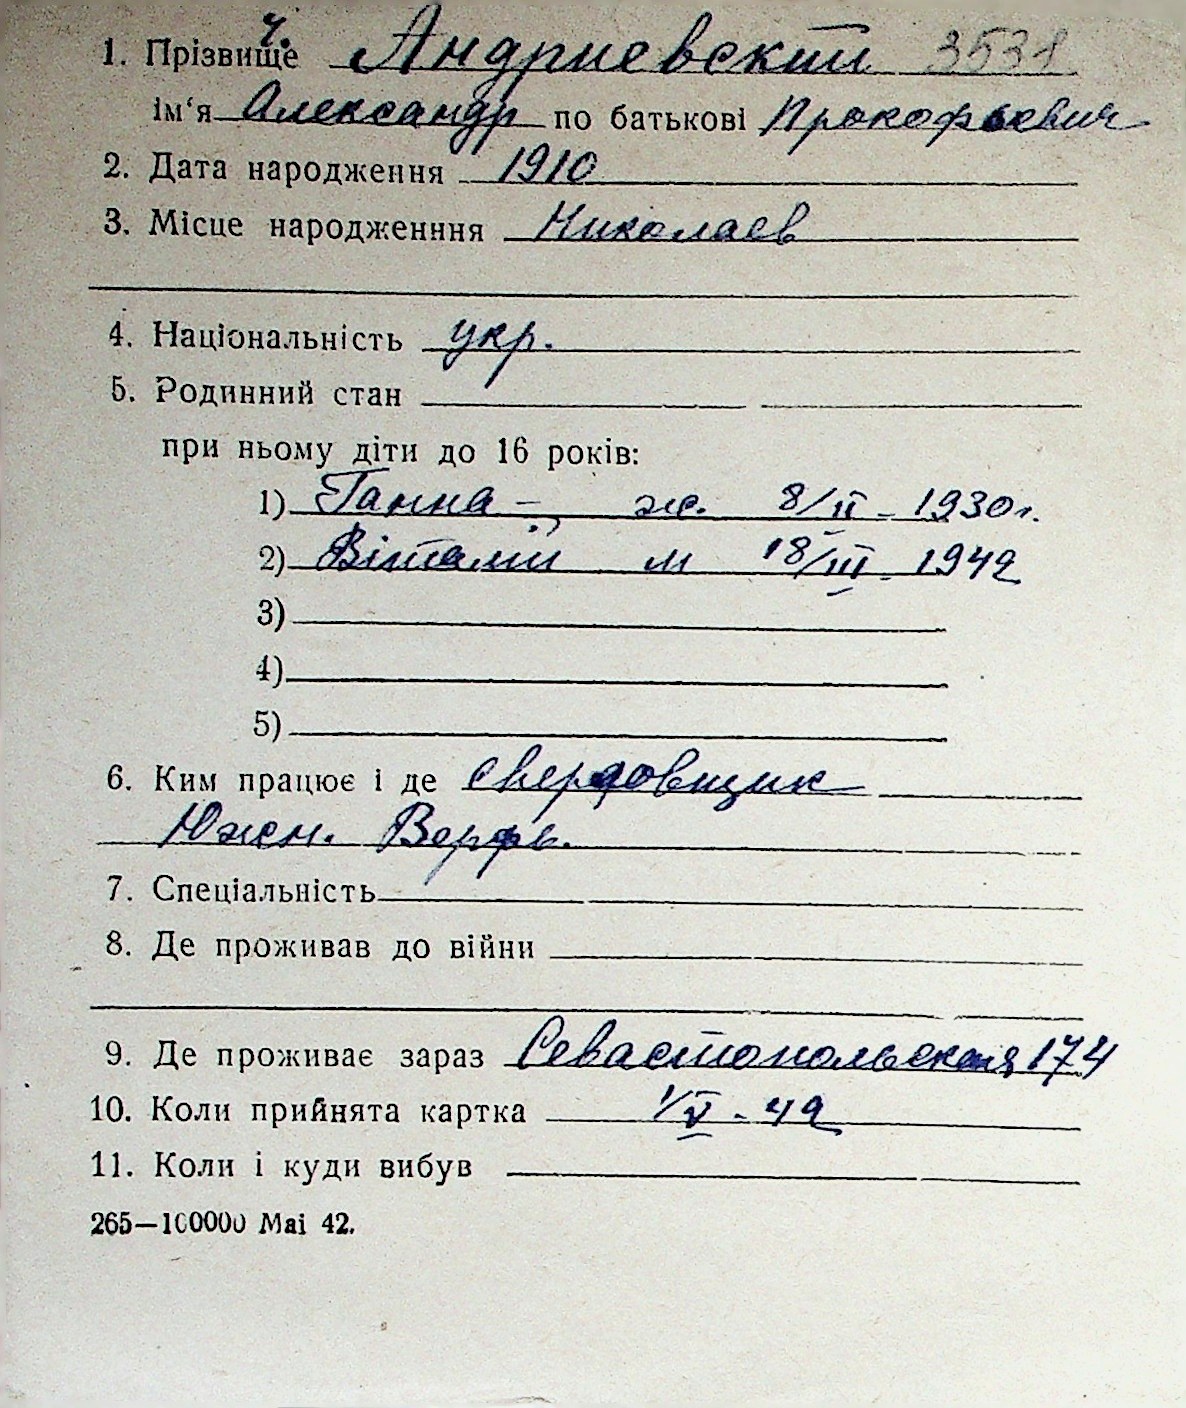 ч.
1. Прізвище Андриевский 3531
ім‘я Александр по батькові Прокофьевич
2. Дата народження 1910
3. Місце народженння Николаев
4. Національність укр.
5. Родинний стан
при ньому діти до 16 років:
1) Ганна – ж. 8/II - 1930 г.
2) Віталий м 18/III - 1942
3)
4)
5)
6. Ким працює і де сверловщик
Южн. Верфь.
7. Спеціальність
8. Де проживав до війни
9. Де проживає зараз Севастопольская 174
10. Коли прийнята картка 1/V - 42
11. Коли і куди вибув
265—100000 Mai 42.